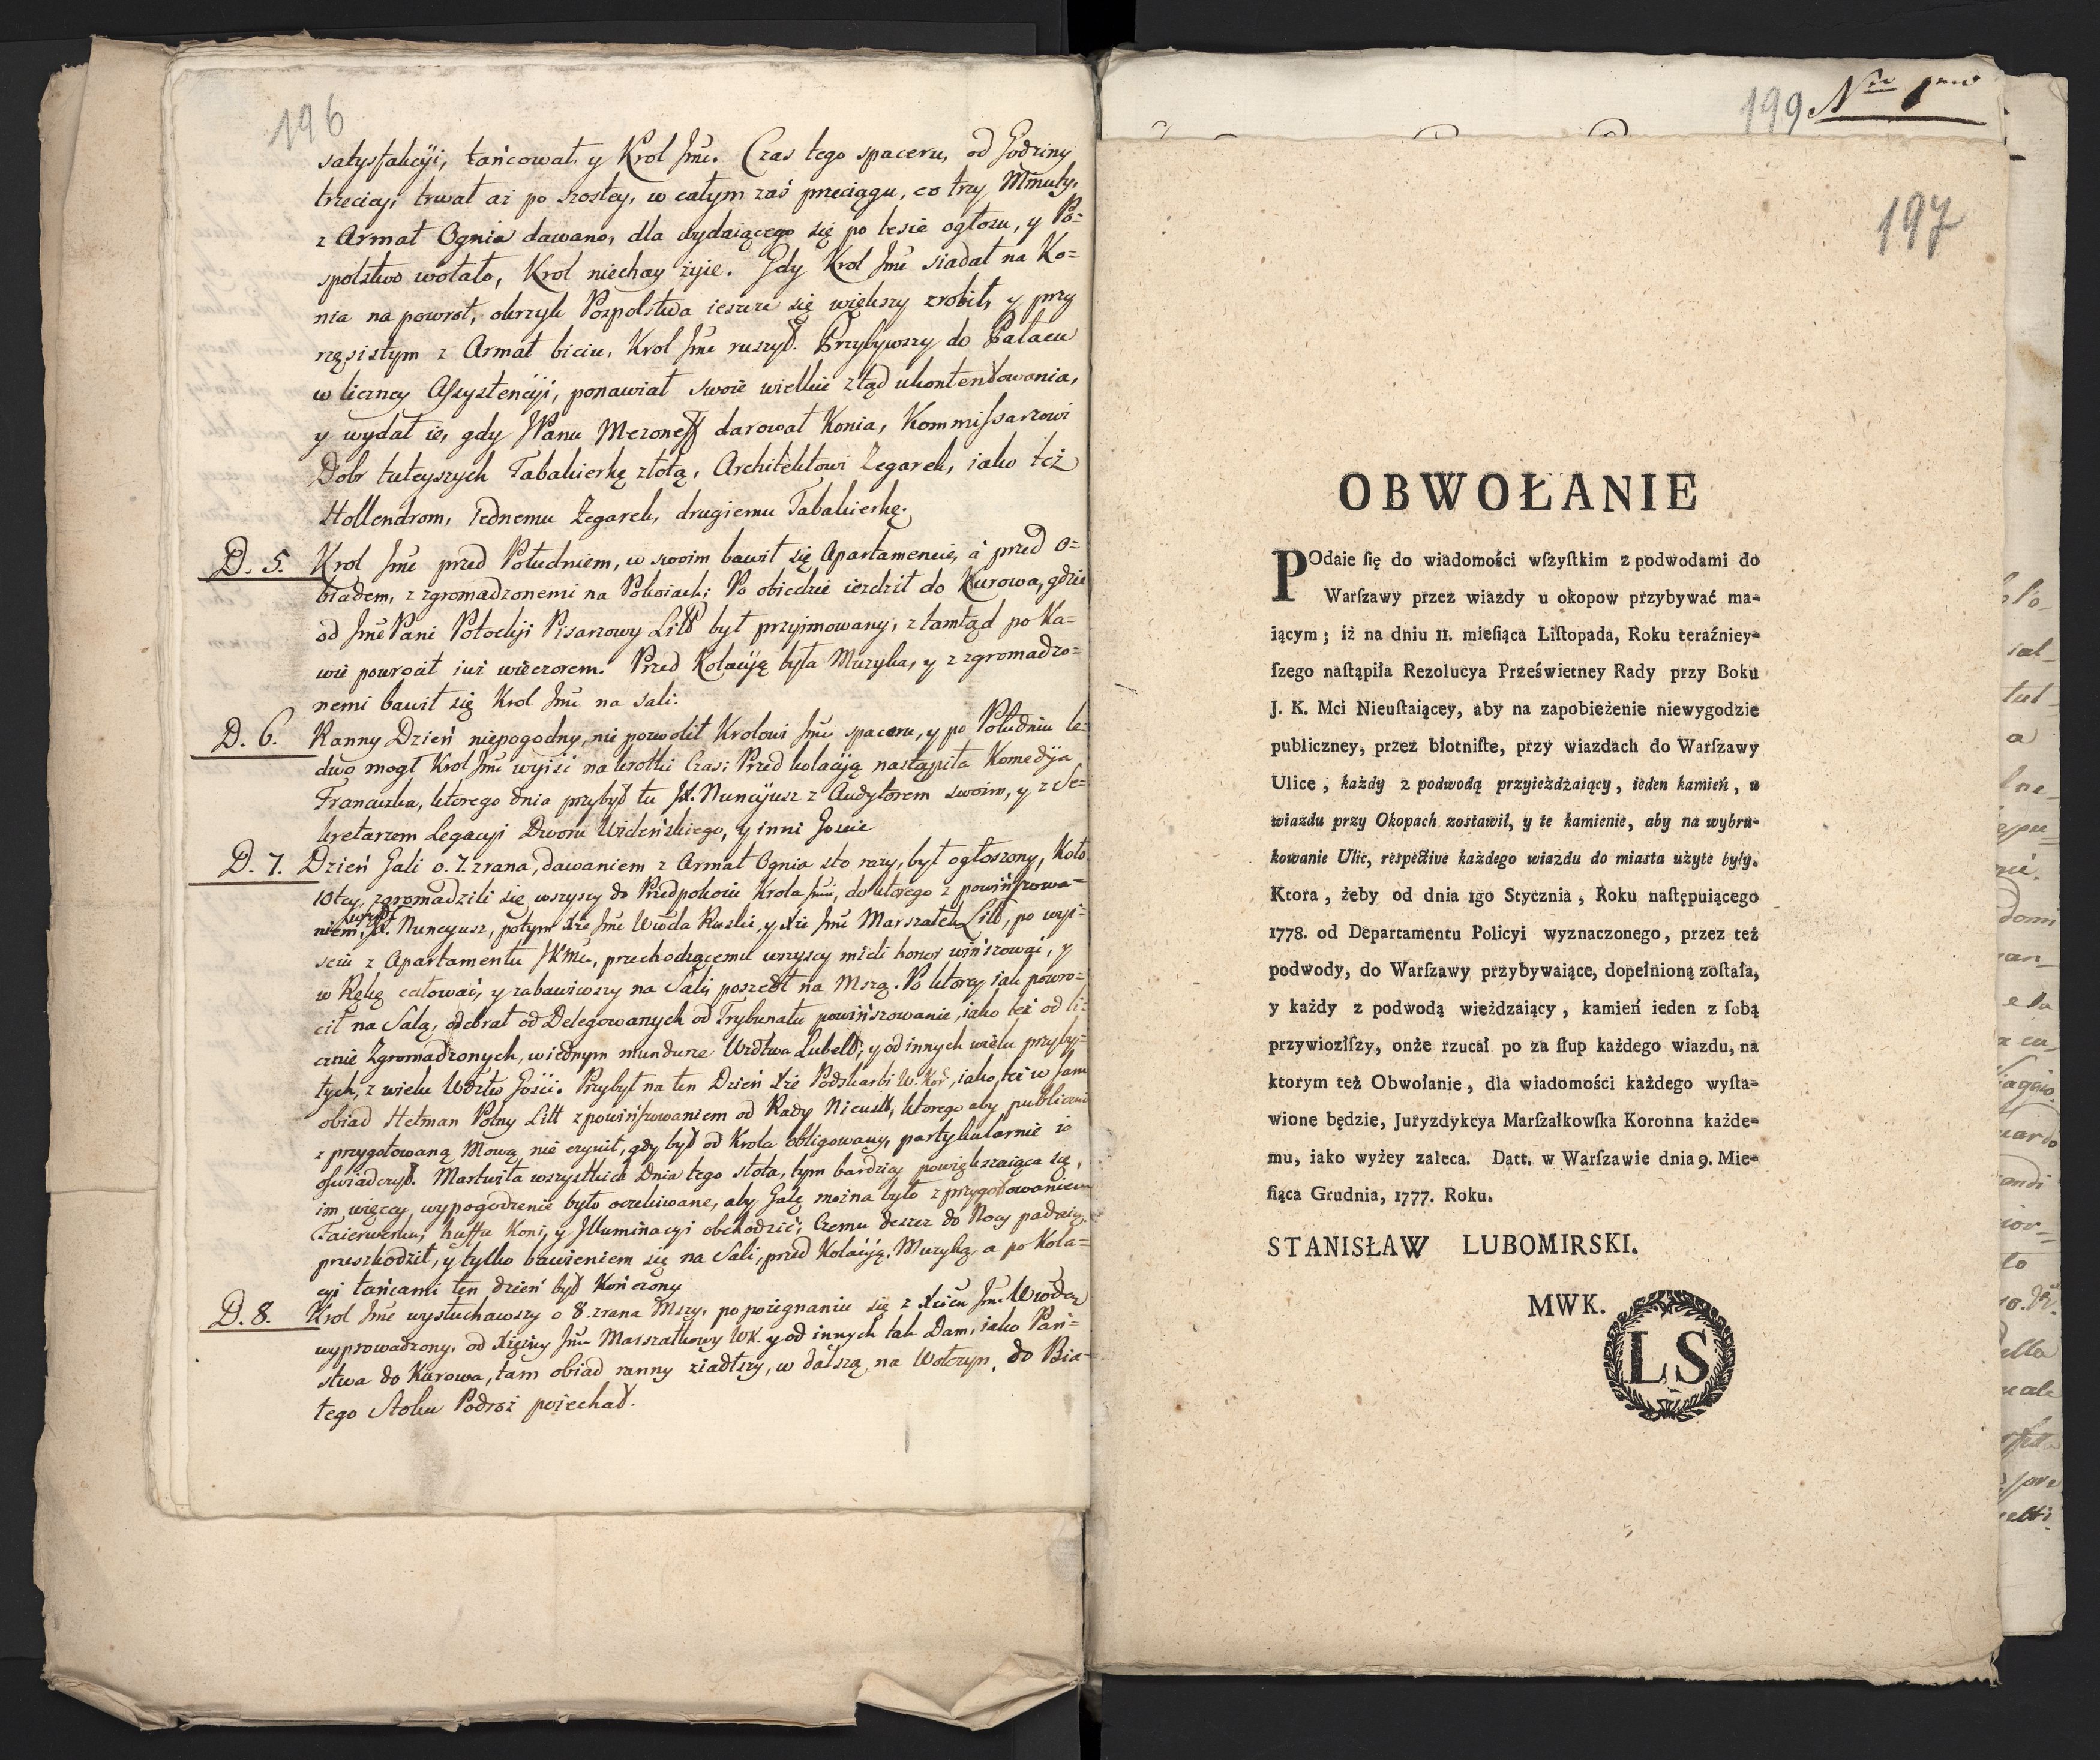 196
satysfakcyi, tańcował y Krol Jmć. Czas tego spaceru, od Godziny
trzeciey, trwał aż po szostey, w całym zaś przeciągu, co trzy Minuty,
z Armat Ognia dawano, dla wydaiącego się po lesie ogłosu, y Po=
spolstwo wołało, Krol niechay żyie. Gdy Krol Jmć siadał na Ko=
nia na powrot, okrzyk Pospolstwa ieszcze się większy zrobił, y przy
rzęsistym z Armat biciu, Krol Jmć ruszył. Przybywszy do Pałacu
w liczney Assystencyi, ponawiał swoie wielkie ztąd ukontentowania,
y wydał ie, gdy JPanu Mezoneff darował Konia, Kommissarzowi
Dobr tuteyszych Tabakierkę złotą, Architektowi Zegarek, iako też
Hollendrom, Jednemu Zegarek, drugiemu Tabakierkę.
D. 5. Krol Jmć przed Południem, w swoim bawił się Apartamencie, á przed O=
biadem, z zgromadzonemi na Pokoiach; Po obiedzie iezdził do Kurowa, gdzie
od Jmć Pani Potockiji Pisarzowy Litt był przyimowany, z tamtąd po Ka=
wie powrocił iuż wieczorem. Przed Kolacyją była Muzyka, y z zgromadzo=
nemi bawił się Krol Jmć na Sali.
D. 6. Ranny Dzień niepogodny, nie pozwolił Krolowi Jmć spaceru, y po Południu le=
dwo mogł Krol Jmć wyiść na krotki Czas; Przed kolacyją nastąpiła Komedyja
Francuzka, ktorego dnia przybył tu JX. Nuncyusz z Audytorem swoim, y z Se=
kretarzem Legacyi Dworu Wideńskiego, y inni Goscie
D. 7. Dzień Gali o. 7. zrana, dawaniem z Armat Ognia sto razy, był ogłoszony, Koło
10tey, zgromadzili się wszyscy do Przedpokoiu Krola Jmci, do ktorego z powinszowa=
niem, JX. Nuncyusz, potym Xże Jmć Wwoda Ruski, y Xże Jmć Marszałek Litt, po wyi=
sciu z Apartamentu JKMci, przechodzącemu wszyscy mieli honor winszować, y
w Rękę całować, y zabawiwszy na Sali poszedł na Mszą. Po ktorey iak powro=
cił na Salą, odebrał od Delegowanych od Trybunału powinszowanie, iako też od li=
cznie Zgromadzonych, w iednym mundurze Wdztwa Lubels; y od innych wielu przyby=
tych, z wielu Wdztw Gości. Przybył na ten Dzień Xże Podskarbi W. Kor, iako też w sam
obiad Hetman Polny Litt z powinszowaniem od Rady Nieust, ktorego aby publicznie
z przygotowaną Mową nie czynił, gdy był od Krola obligowany, partykularnie ie
oswiadczył. Martwiła wszystkich Dnia tego słota, tym bardziey powiększaiąca się,
im więcey wypogodzenie było oczekiwane, aby Galę można było z przygotowaniem
Faierwerku, huffu Koni, y Jlluminacyi obchodzić; Czemu deszcz do Nocy padaiąc
przeszkodził, y tylko bawieniem się na Sali, przed Kolacyją Muzyką, a po Kola=
cyi tańcami ten dzień był Kończony
D. 8. Krol Jmć wysłuchawszy o 8. zrana Mszy, po pożegnaniu się z Xciem Jmć Wwodą
wyprowadzony, od Xiężny Jmć Marszałkowy WK. y od innych tak Dam, iako Pań=
stwa do Kurowa, tam obiad ranny ziadłszy, w dalszą na Wołczyn, do Bia=
łego Stoku Podroż poiechał.
199 Nro 1mo
197
OBWOŁANIE
POdaie ſię do wiadomości wſzyſtkim z podwodami do
Warſzawy przez wiazdy u okopow przybywać ma=
iącym; iż na dniu 11. mieſiąca Liſtopada, Roku teraźniey=
ſzego naſtąpiła Rezolucya Prześwietney Rady przy Boku
J. K. Mci Nieuſtaiącey, aby na zapobieżenie niewygodzie
publiczney, przez błotniſte, przy wiazdach do Warſzawy
Ulice, każdy z podwodą przyieżdżaiący, ieden kamień, u
wiazdu przy Okopach zostawił, y te kamienie, aby na wybru=
kowanie Ulic, respective każdego wiazdu do miasta użyte były.
Ktora, żeby od dnia 1go Stycznia, Roku naſtępuiącego
1778. od Departamentu Policyi wyznaczonego, przez też
podwody, do Warſzawy przybywaiące, dopełnioną zoſtała,
y każdy z podwodą wieżdzaiący, kamień ieden z ſobą
przywiozłſzy, onże rzucał po za ſłup każdego wiazdu, na
ktorym też Obwołanie, dla wiadomości każdego wyſta=
wione będzie, Juryzdykcya Marſzałkowſka Koronna każde=
mu, iako wyżey zaleca. Datt. w Warſzawie dnia 9. Mie=
ſiąca Grudnia, 1777. Roku.
STANISŁAW LUBOMIRSKI.
MWK.
LS